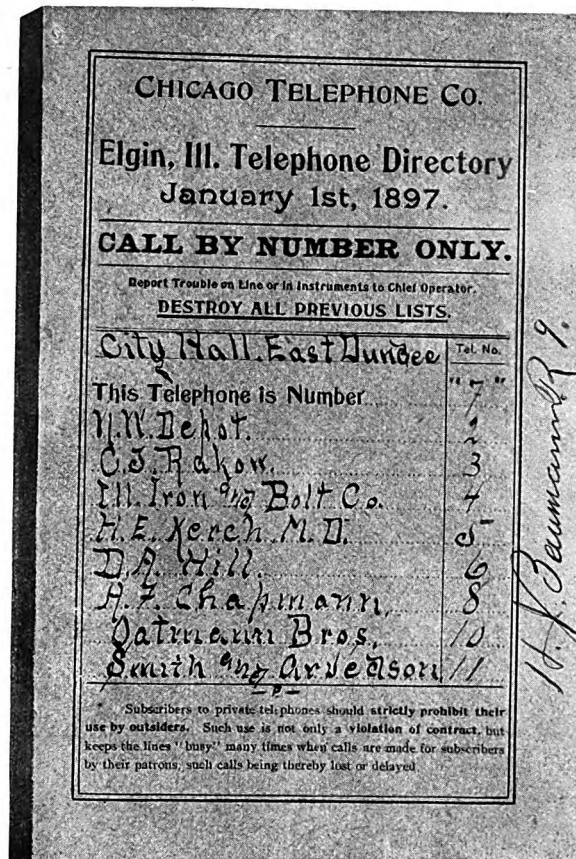 CHICAGO TELEPHONE CO.
Elgin, Ill. Telephone Directory
January 1st, 1897.
CALL BY NUMBER ONLY.
Report Trouble on Line or in Instruments to Chief Operator.
DESTROY ALL PREVIOUS LISTS.
City Hall. East Dundee Tel. No.
This Telephone is Number "7"
N.W. Depot. 2
C.F. Rakow. 3
Ill. Iron and Bolt Co. 4
H.E. Kerch M.D. 5
D.A. Hill. 6
A.F. Chapmann, 8
Oatmann Bros, 10
Smith and Arvedson 11
Subscribers to private telephones should strictly prohibit their
use by outsiders. Such use is not only a violation of contract, but
keeps the lines "busy" many times when calls are made for subscribers
by their patrons, such calls being thereby lost or delayed
H.J. Baumann R 9.